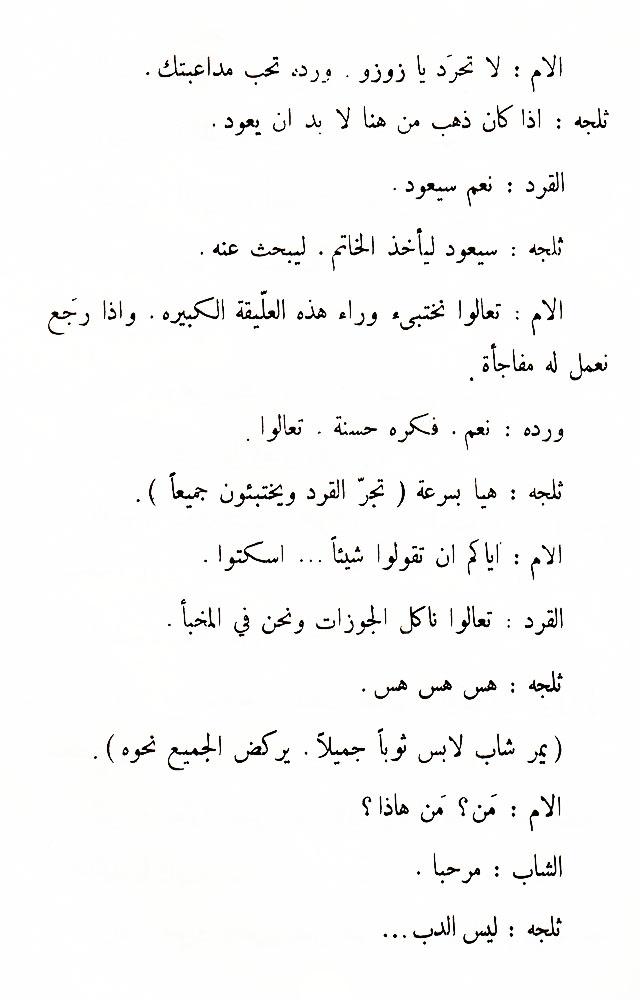 الام : لا تحرَد يا زوزو . ورده تحب مداعبتك .
ثلجه : اذا كان ذهب من هنا لا بد ان يعود .
القرد : نعم سيعود .
ثلجه : سيعود ليأخذ الخاتم . ليبحث عنه .
الام : تعالوا نختبىء وراء هذه العلّيقة الكبيره . واذا رجَع
نعمل له مفاجأة .
ورده : نعم . فكره حسنة . تعالوا .
ثلجه : هيا بسرعة ( تجرّ القرد ويختبئون جميعاً ) .
الام : اياكم ان تقولوا شيئاً ... اسكتوا .
القرد : تعالوا ناكل الجوزات ونحن في المخبأ .
ثلجه : هس هس هس .
( يمر شاب لابس ثوباً جميلاً . يركض الجميع نحوه ) .
الام : مَن ؟ مَن هاذا ؟
الشاب : مرحبا .
ثلجه : ليس الدب ...